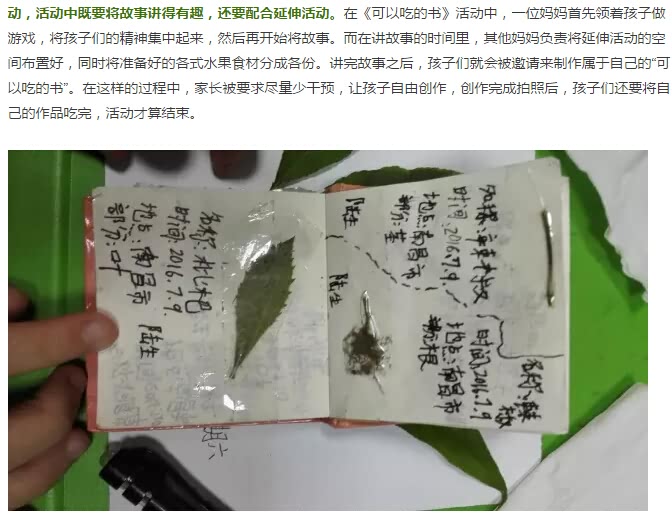 动，活动中既要将故事讲得有趣，还要配合延伸活动。在《可以吃的书》活动中，一位妈妈首先领着孩子做
游戏，将孩子们的精神集中起来，然后再开始将故事。而在讲故事的时间里，其他妈妈负责将延伸活动的空
间布置好，同时将准备好的各式水果食材分成各份。讲完故事之后，孩子们就会被邀请来制作属于自己的“可
以吃的书”。在这样的过程中，家长被要求尽量少干预，让孩子自由创作，创作完成拍照后，孩子们还要将自
己的作品吃完，活动才算结束。
名称:
时间:2016.7.9.
地点:南昌市 陆生
部分:叶
名称:
时间:2016.7.9.
地点:南昌市
部分:茎
陆生
名称:
时间2016.7.9
地点:南昌市
部分:根
陆生